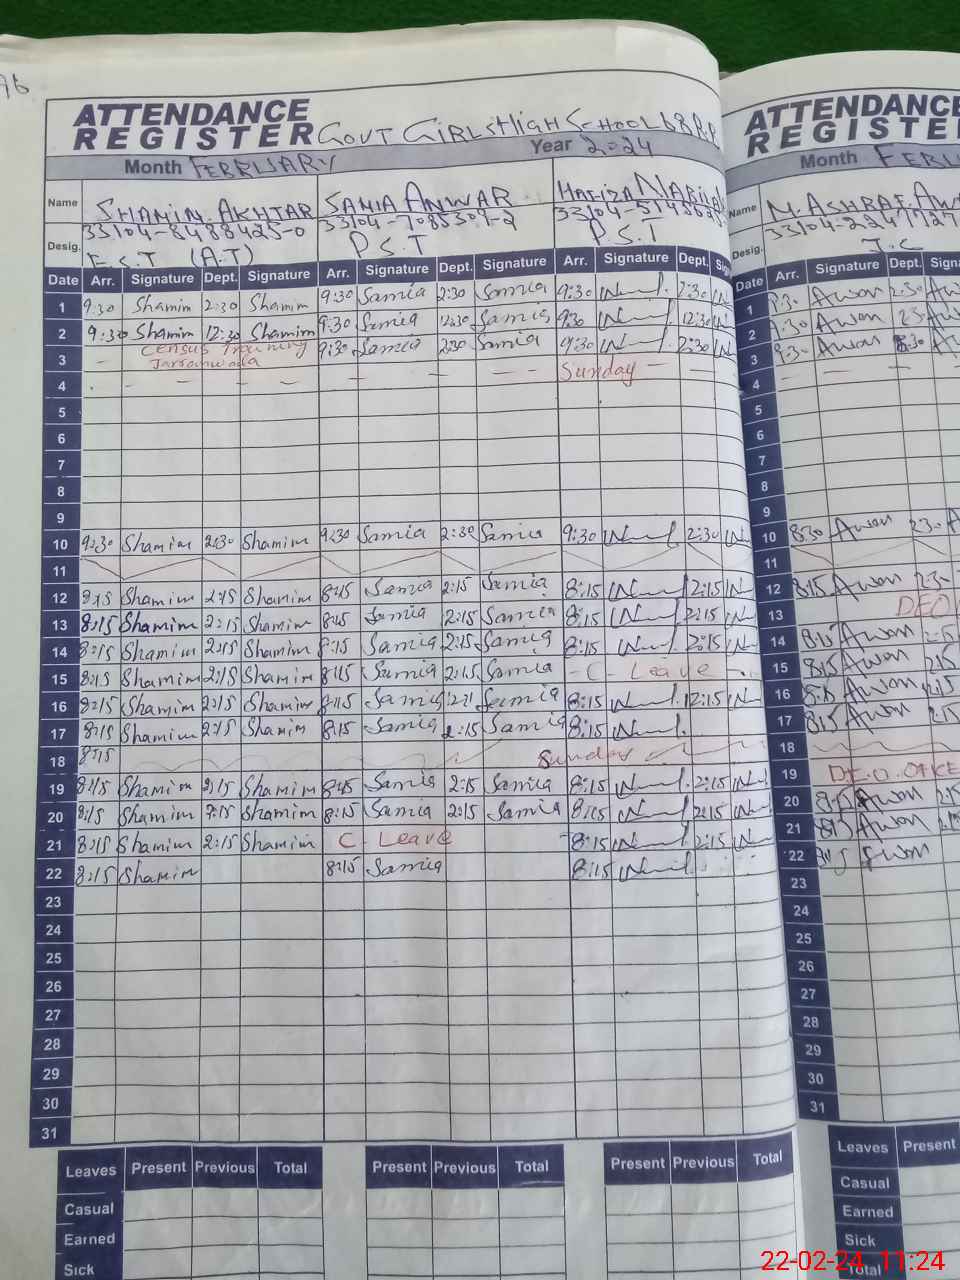 ATTENDANCE
REGISTER GOVT GIRLS HIGH SCHOOL
Month FEBRUARY Year 2024
Name SHAMIM AKHTAR SAMIA ANWAR HAFIZA NABILA
33104-8488425-0 33104-7085309-2 33104-5143
Desig. E.S.T (A.T) P.S.T P.S.T
Date Arr. Signature Dept. Signature Arr. Signature Dept. Signature Arr. Signature Dept.
1 9:30 Shamim 2:30 Shamim 9:30 Samia 2:30 Samia 9:30 2:30
2 9:30 Shamim 12:30 Shamim 9:30 Samia 12:30 Samia 9:30 12:30
3 Census Training 9:30 Samia 2:30 Samia 9:30 2:30
Jarranwala
4 Sunday
5
6
7
8
9
10 9:30 Shamim 2:30 Shamim 9:30 Samia 2:30 Samia 9:30 2:30
11
12 8:15 Shamim 2:15 Shamim 8:15 Samia 2:15 Samia 8:15 2:15
13 8:15 Shamim 2:15 Shamim 8:15 Samia 2:15 Samia 8:15 2:15
14 8:15 Shamim 2:15 Shamim 8:15 Samia 2:15 Samia 8:15 2:15
15 8:15 Shamim 2:15 Shamim 8:15 Samia 2:15 Samia C- Leave
16 8:15 Shamim 2:15 Shamim 8:15 Samia Samia 8:15 12:15
17 8:15 Shamim 2:15 Shamim 8:15 Samia 2:15 Samia 8:15
18 8:15 Sunday
19 8:15 Shamim 2:15 Shamim 8:15 Samia 2:15 Samia 8:15 2:15
20 8:15 Shamim 2:15 Shamim 8:15 Samia 2:15 Samia 8:15 2:15
21 8:15 Shamim 2:15 Shamim C- Leave 8:15 2:15
22 8:15 Shamim 8:15 Samia 8:15
23
24
25
26
27
28
29
30
31
Leaves Present Previous Total Present Previous Total Present Previous Total
Casual
Earned
Sick
ATTENDANCE
REGISTER
Month
Name M. ASHRAF
Desig. J.C
Date Arr. Signature Dept.
1 Awan 2:30
2 Awan
3 8:30 Awan
4
5
6
7
8
9
10 8:30 Awan 2:30
11
12 8:15 Awan 2:30
13 DEO
14 8:15 Awan 2:15
15 8:15 Awan 2:15
16 8:15 Awan
17 8:15 Awan 2:15
18
19 D.E.O. OFFICE
20 Awan 2:15
21 Awan
22 Awan
23
24
25
26
27
28
29
30
31
Leaves Present
Casual
Earned
Sick
Total
22-02-24 11:24